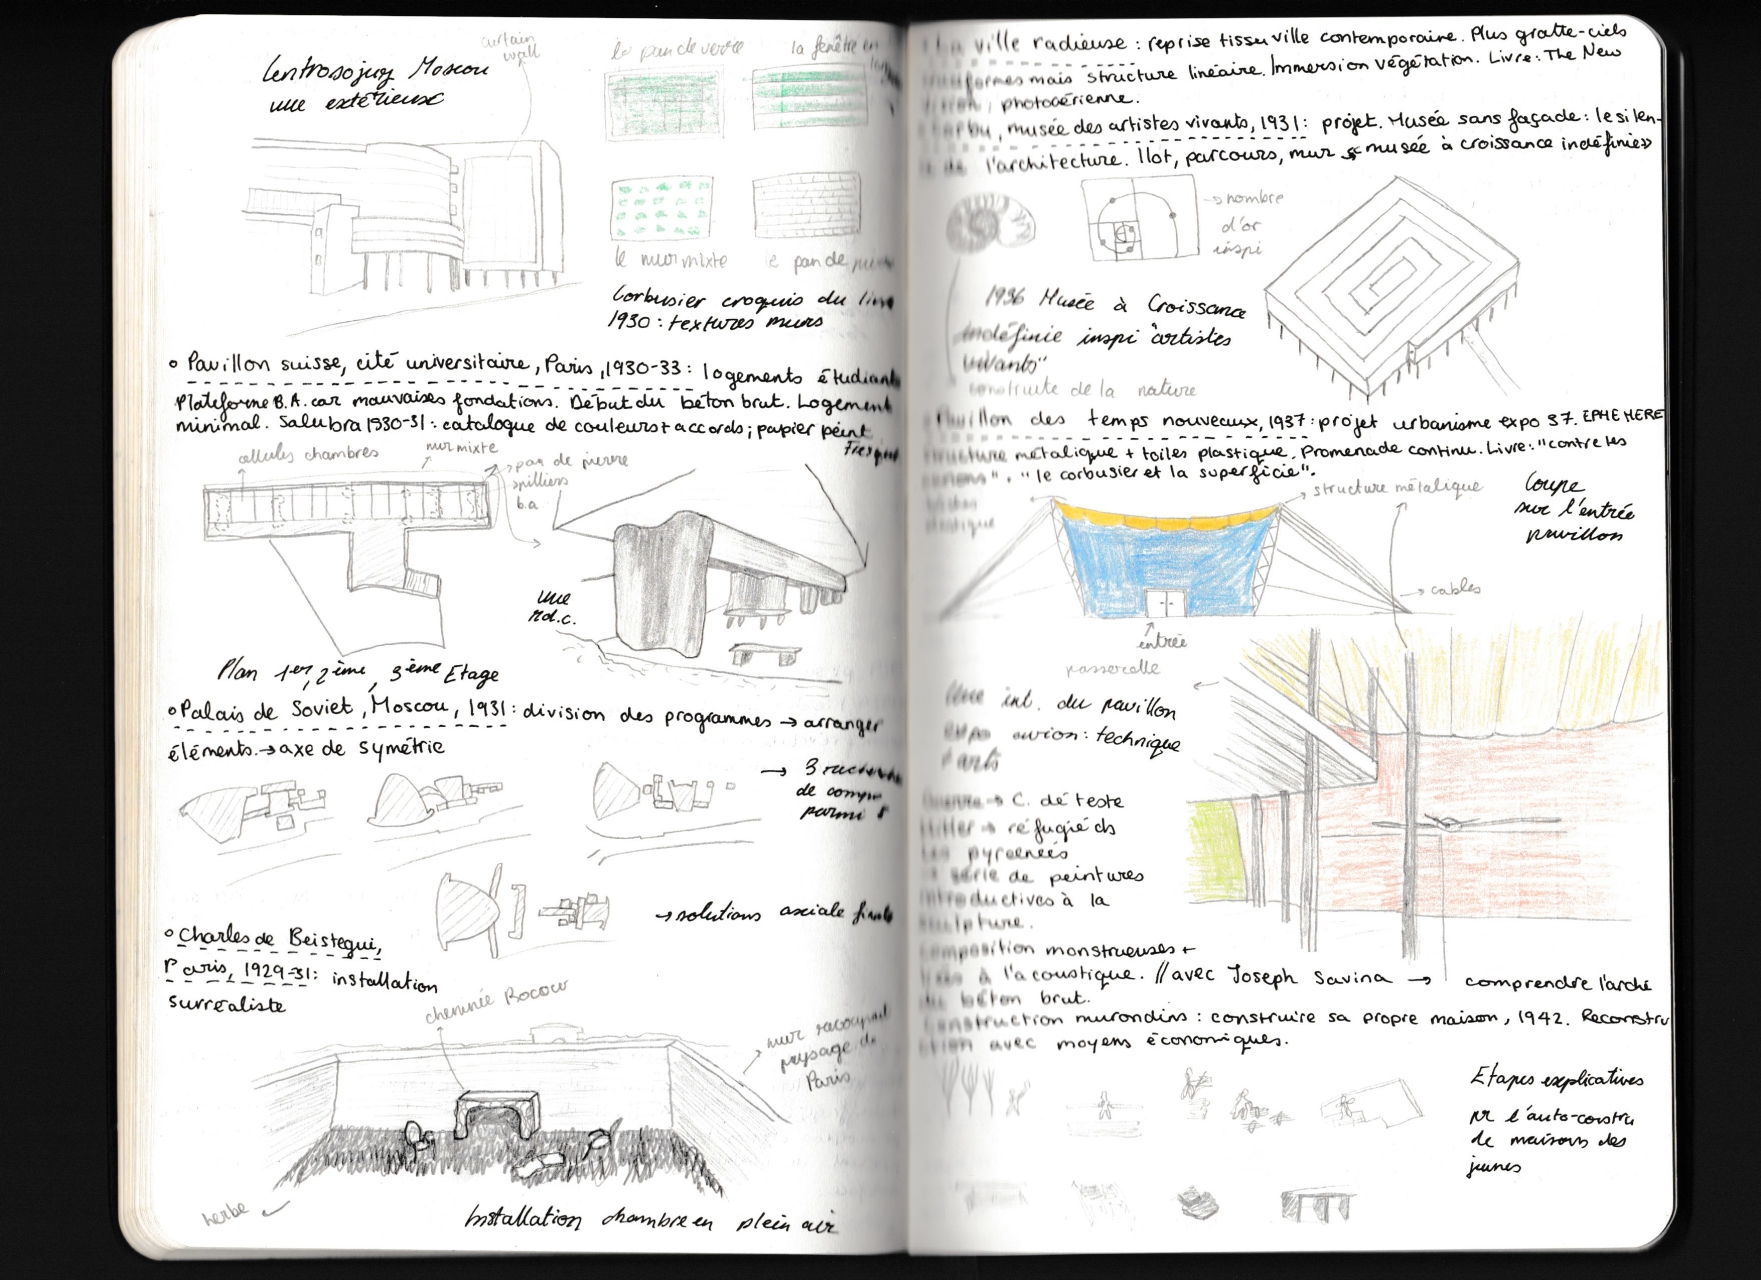 Centrosojuz Moscou
vue extérieure
curtain
wall
le pan de verre
la fenêtre en
le mur mixte
le pan de
Corbusier croquis du
1930 : textures murs
o Pavillon suisse, cité universitaire, Paris, 1930-33 : logements étudiants
Plateforme B.A. car mauvaises fondations. Début du béton brut. Logement
minimal. Salubra 1930-31 : catalogue de couleurs + accords ; papier peint
cellules chambres
mur mixte
→ pan de pierre
→ pilliers
b.a
vue
rd.c.
Plan 1er, 2ème, 3ème Etage
o Palais de Soviet, Moscou, 1931 : division des programmes → arranger
éléments. → axe de symétrie
→ 3
de
parmi 8
→ solutions axiale
o Charles de Beistegui,
Paris, 1929-31 : installation
surréaliste
cheminée Rococo
mur
paysage de
Paris
herbe
Installation chambre en plein air
La ville radieuse : reprise tissu ville contemporaine. Plus gratte-ciels
mais structure linéaire. Immersion végétation. Livre : The New
photoaérienne.
musée des artistes vivants, 1931 : projet. Musée sans façade : le silen-
de l'architecture. Ilot, parcours, mur « musée à croissance indéfinie »
→ nombre
d'or
inspi
1936 Musée à Croissance
indéfinie inspi "artistes
vivants"
construite de la nature
Pavillon des temps nouveaux, 1937 : projet urbanisme expo 37. EPHEMERE
structure métalique + toiles plastique. Promenade continu. Livre : "contre les
". "le corbusier et la superficie".
→ structure métalique
Coupe
sur l'entrée
pavillon
→ cables
entrée
passerelle
Vue int. du pavillon
expo avion : technique
arts
→ C. déteste
Hitler → réfugié ds
les pyrénnées
série de peintures
introductives à la
sculpture.
composition monstrueuses +
à l'acoustique. // avec Joseph Savina → comprendre l'archi
du béton brut.
construction murondins : construire sa propre maison, 1942. Reconstru
ction avec moyens économiques.
Etapes explicatives
pr l'auto-constru
de maisons des
jeunes